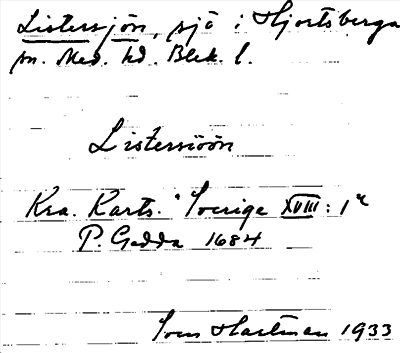 Listersjön, sjö i Hjortsberga
sn. Med. hd. Blek. l.
Listersiöön
Kra. Karts. Sverige XVIII: 1
P. Gedda 1684
Sven Hartman 1933